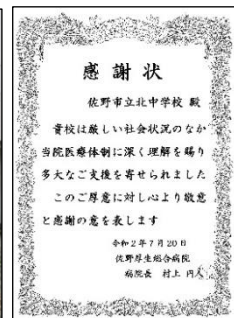 感謝状
佐野市立北中学校 殿
貴校は厳しい社会状況のなか
当院医療体制に深く理解を賜り
多大なご支援を寄せられました
このご厚意に対し心より敬意
と感謝の意を表します
令和2年7月20日
佐野厚生総合病院
病院長 村上 円人